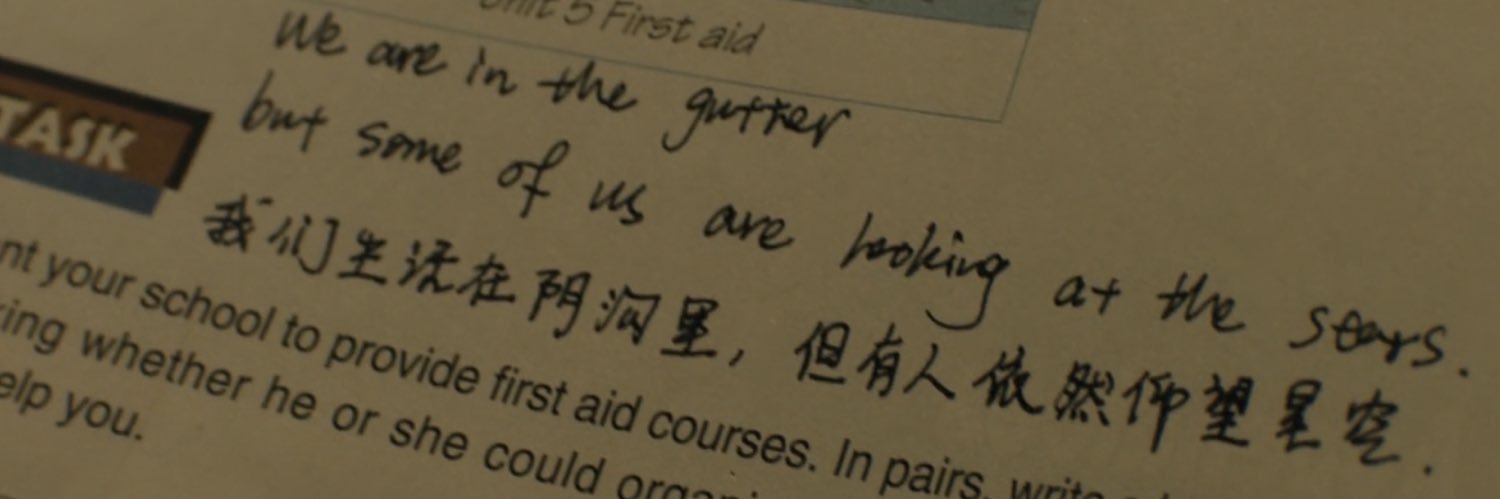 Unit 5 First aid
We are in the gutter
but some of us are looking at the stars.
TASK
我们生活在阴沟里，但有人依然仰望星空.
your school to provide first aid courses. In pairs, write
whether he or she could
you.